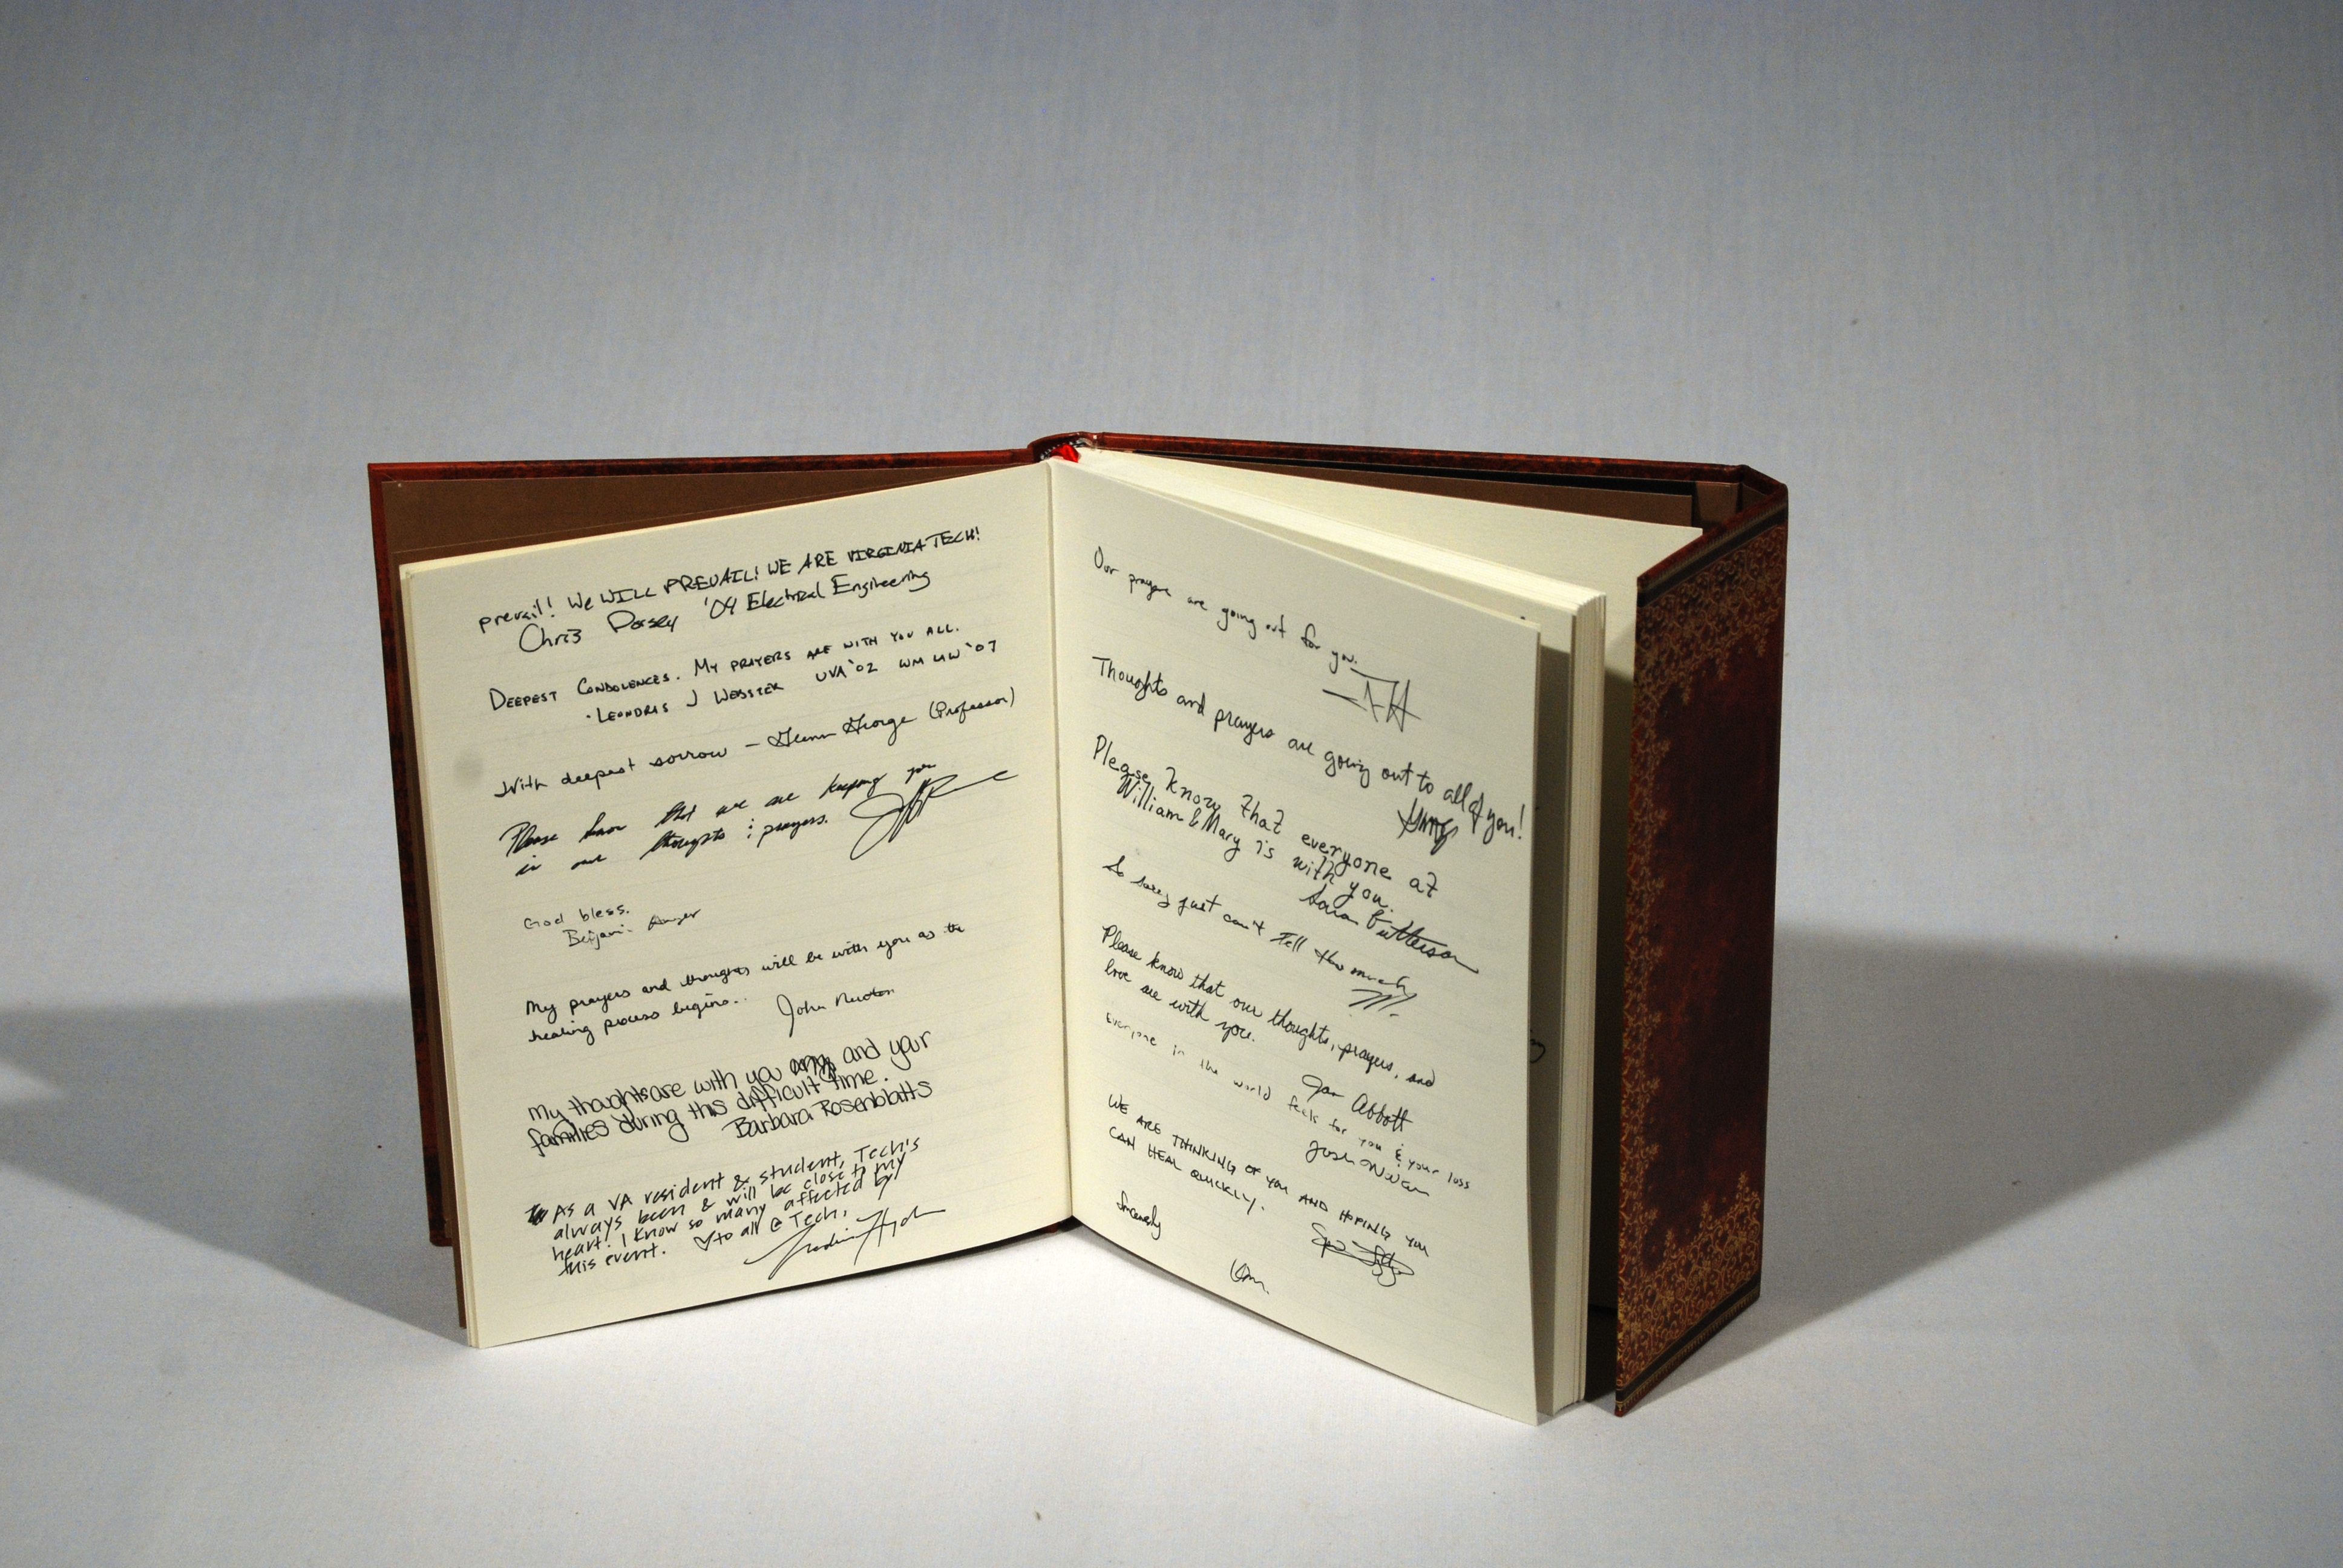 prevail! We WILL PREVAIL! WE ARE VIRGINIA TECH!
Chris Dorsey '04 Electrical Engineering
DEEPEST CONDOLENCES. MY PRAYERS ARE WITH YOU ALL.
- LEONDRAS J WEBSTER UVA '02 WM LAW '07
With deepest sorrow — Glenn George (Professor)
Please know that we are keeping you
in our thoughts & prayers.
God bless.
My prayers and thoughts will be with you as the
healing process begins... John Newton
My thoughts are with you and your
families during this difficult time.
Barbara Rosenblatts
As a VA resident & student, Tech's
always been & will be close to my
heart. I know so many affected by
this event. ♡ to all @ Tech,
Our prayers are going out for you.
Thoughts and prayers are going out to all of you!
Please know that everyone at
William & Mary is with you.
Sara
So sorry just can't tell how much
Please know that our thoughts, prayers, and
love are with you.
Jan Abbott
Everyone in the world feels for you & your loss
Josh
WE ARE THINKING OF YOU AND HOPING YOU
CAN HEAL QUICKLY.
Sincerely